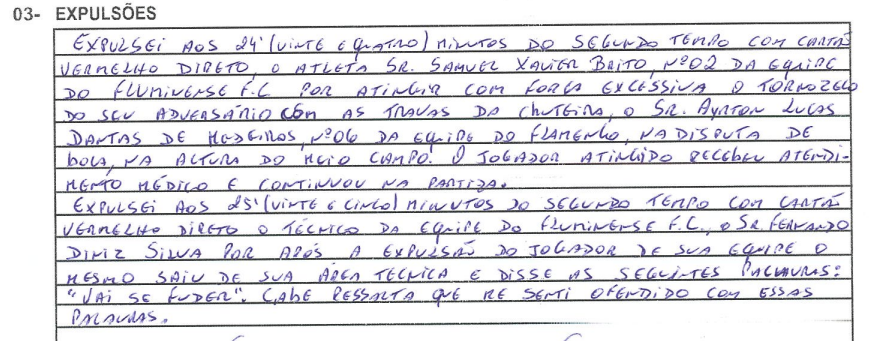 03- EXPULSÕES
EXPULSEI AOS 24' (VINTE E QUATRO) MINUTOS DO SEGUNDO TEMPO COM CARTÃO
VERMELHO DIRETO, O ATLETA SR. SAMUEL XAVIER BRITO, Nº02 DA EQUIPE
DO FLUMINENSE F.C POR ATINGIR COM FORÇA EXCESSIVA O TORNOZELO
DO SEU ADVERSÁRIO COM AS TRAVAS DA CHUTEIRA, O SR. AYRTON LUCAS
DANTAS DE MEDEIROS, Nº06 DA EQUIPE DO FLAMENGO, NA DISPUTA DE
BOLA, NA ALTURA DO MEIO CAMPO. O JOGADOR ATINGIDO RECEBEU ATENDI-
MENTO MÉDICO E CONTINUOU NA PARTIDA.
EXPULSEI AOS 25' (VINTE E CINCO) MINUTOS DO SEGUNDO TEMPO COM CARTÃO
VERMELHO DIRETO O TÉCNICO DA EQUIPE DO FLUMINENSE F.C., O SR. FERNANDO
DINIZ SILVA POR APÓS A EXPULSÃO DO JOGADOR DE SUA EQUIPE O
MESMO SAIU DE SUA ÁREA TÉCNICA E DISSE AS SEGUINTES PALAVRAS:
"VAI SE FUDER". CABE RESSALTA QUE ME SENTI OFENDIDO COM ESSAS
PALAVRAS.